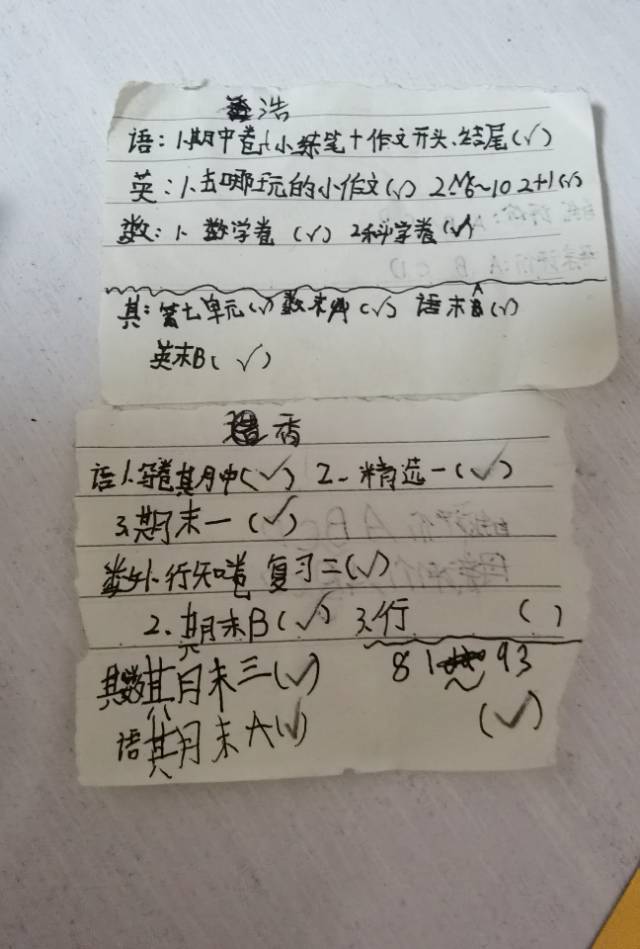 浩
语：1.期中卷+小练笔+作文开头、结尾(√)
英：1.去哪玩的小作文(√) 2.M6~10 2+1(√)
数：1. 数学卷 (√) 2.科学卷(√)
其：第七单元(√) 数末 (√) 语末B(√) A
英末B( √ )
香
语1.卷期中(√) 2. 精选一(√)
3.期末一 (√)
数外1.行知卷 复习二(√)
2.期末B(√) 3.行 ( )
其数期末三(√) 81~93
语期末A(√) (√)